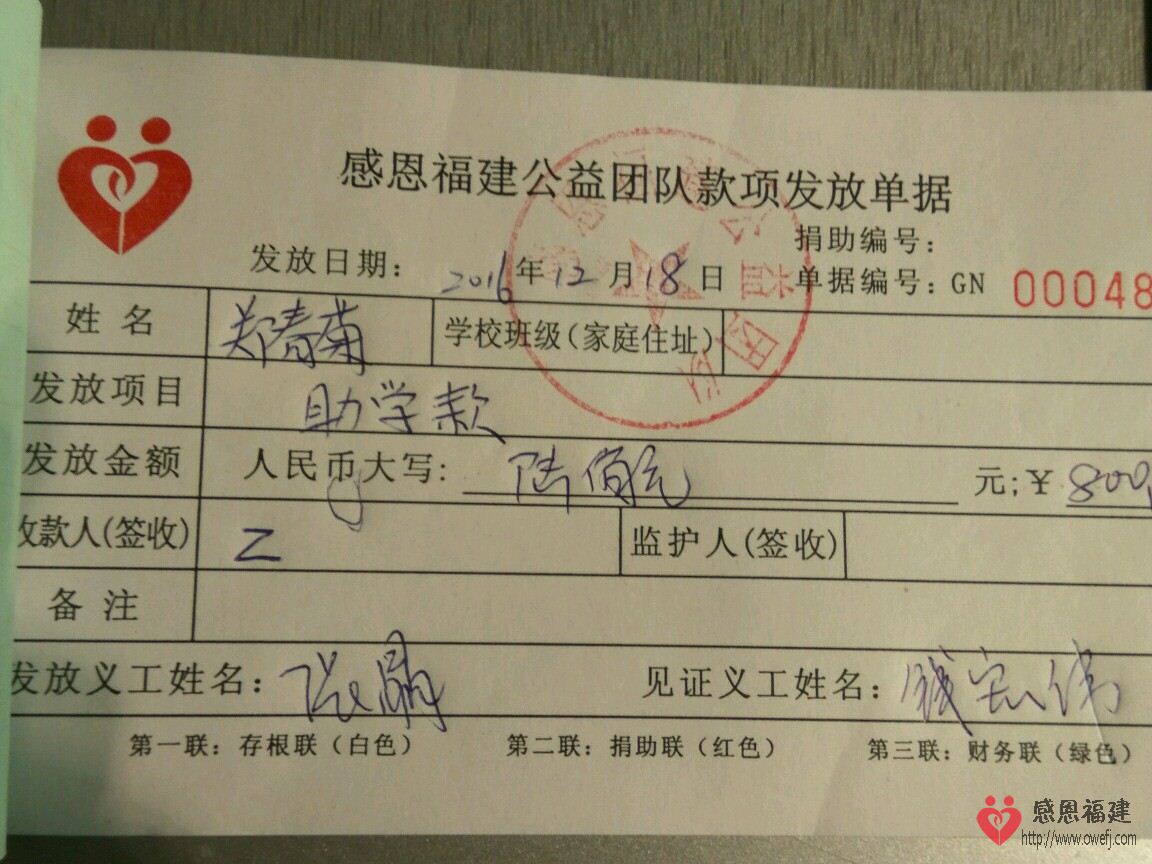 感恩福建公益团队款项发放单据
捐助编号：
发放日期： 2016年12月18日 单据编号：GN 00048
姓 名 郑春菊 学校班级（家庭住址）
发放项目 助学款
发放金额 人民币大写: 陆佰元 元;￥800
收款人(签收) 监护人(签收)
备 注
发放义工姓名： 见证义工姓名：
第一联：存根联（白色） 第二联：捐助联（红色） 第三联：财务联（绿色）
感恩福建公益团队
感恩福建
http://www.owefj.com